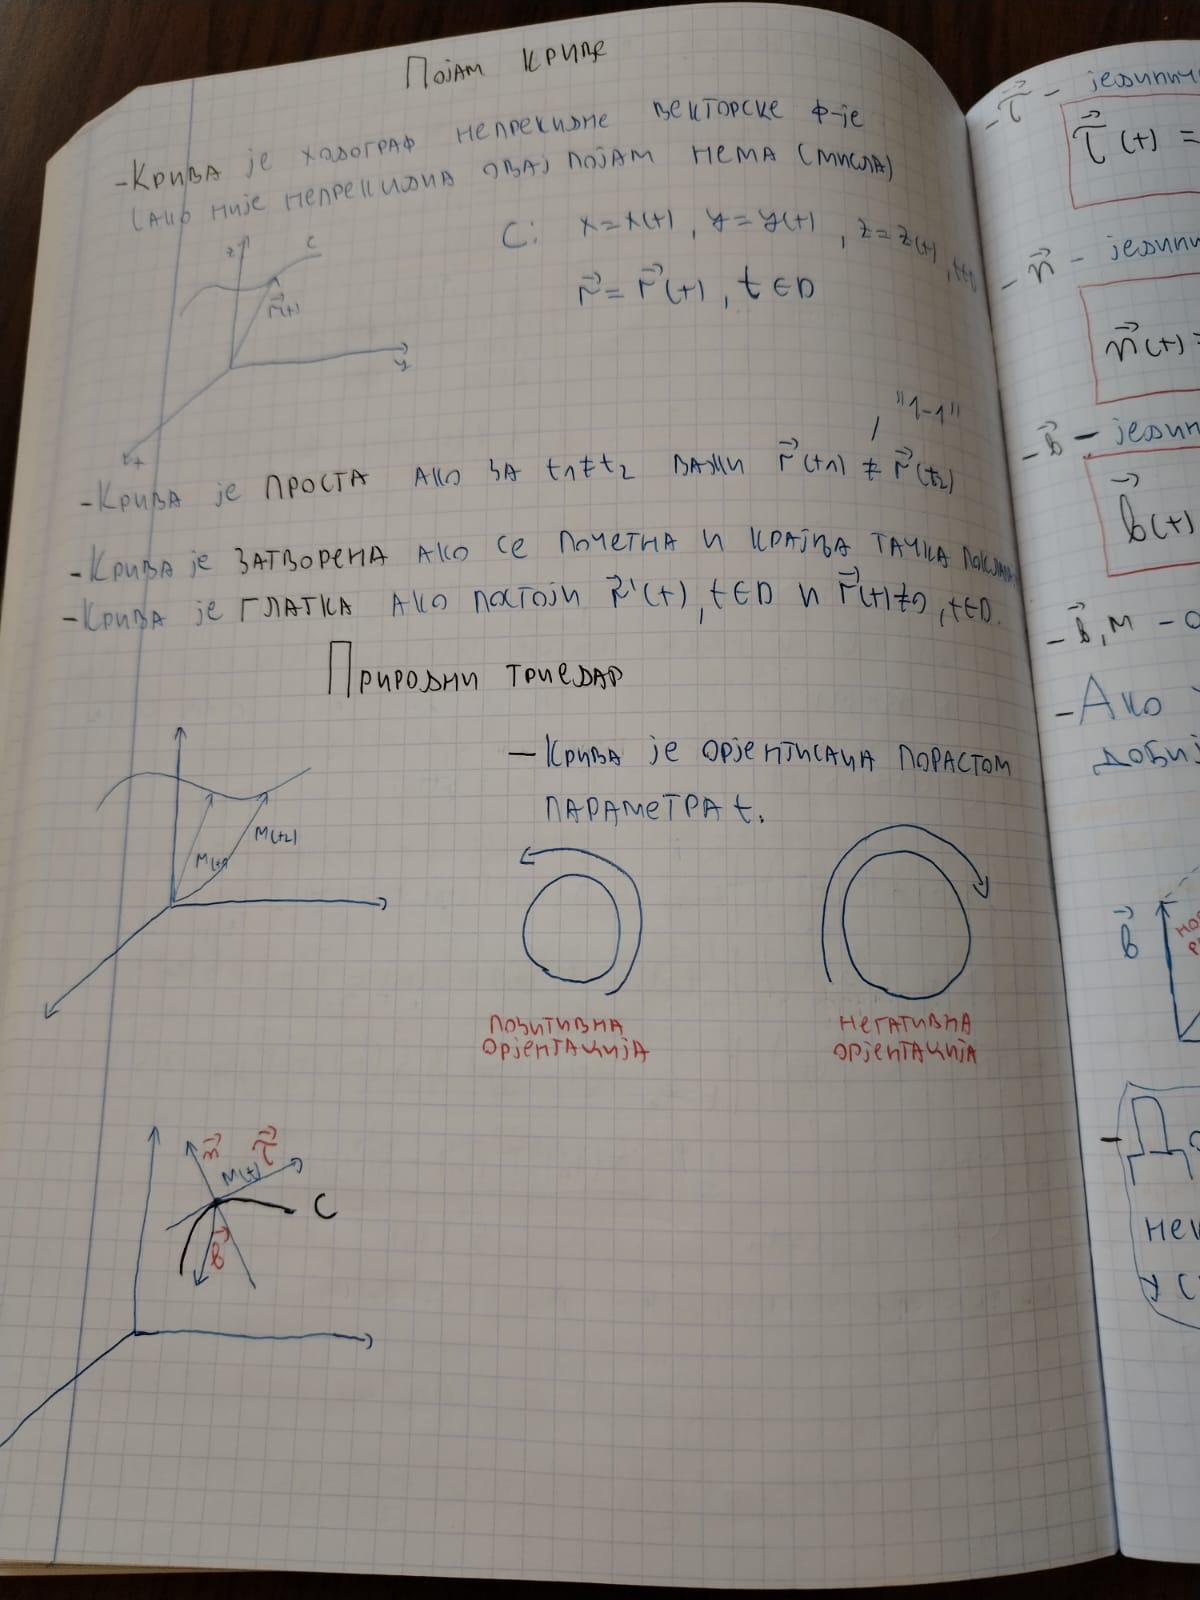 Појам криве
-Крива је ходограф непрекидне векторске ф-је
(ако није непрекидна овај појам нема смисла)
C: x=x(t), y=y(t), z=z(t), t∈D
r⃗=r⃗(t), t∈D
z
C
r⃗(t)
y
x
, "1-1"
-Крива је ПРОСТА ако за t1≠t2 важи r⃗(t1) ≠ r⃗(t2)
-Крива је ЗАТВОРЕНА ако се почетна и крајња тачка
-Крива је ГЛАТКА ако постоји r⃗'(t), t∈D и r⃗(t)≠0, t∈D.
Природни триедар
-Крива је орјентисана порастом
параметра t.
M(t1)
M(t2)
позитивна
орјентација
негативна
орјентација
n⃗
τ⃗
M(t)
C
b⃗
-τ⃗ -
τ⃗(t) =
- n⃗ -
n⃗(t) =
-b⃗ -
b⃗(t)
-b⃗, n -
-Ако
b⃗